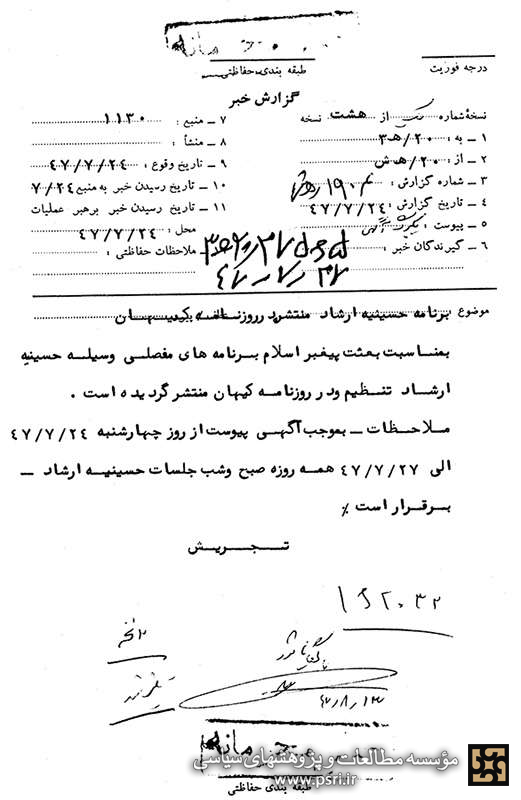 طبقه بندی حفاظتی
درجه فوریت
گزارش خبر
نسخهٔ شماره یک از هشت نسخه
۱ ـ به : ۲۰/ هـ ۳
۲ ـ از : ۲۰/ هـ ش
۳ ـ شماره گزارش :
۴ ـ تاریخ گزارش : ۴۷/۷/۲۴
۵ ـ پیوست : یکبرگ آگهی
۶ ـ گیرندگان خبر :
۷ ـ منبع : ۱۱۳۰
۸ ـ منشأ :
۹ ـ تاریخ وقوع : ۴۷/۷/۲۴
۱۰ ـ تاریخ رسیدن خبر به منبع ۷/۲۴
۱۱ ـ تاریخ رسیدن خبر برهبر عملیات
محل : ۴۷/۷/۲۴
ملاحظات حفاظتی :
موضوع برنامه حسینیه ارشاد منتشره در روزنامه کیهان
بمناسبت بعثت پیغمبر اسلام برنامه های مفصلی وسیله حسینیه
ارشاد تنظیم و در روزنامه کیهان منتشر گردیده است .
ملاحظات ـ بموجب آگهی پیوست از روز چهارشنبه ۴۷/۷/۲۴
الی ۴۷/۷/۲۷ همه روزه صبح وشب جلسات حسینیه ارشاد ـ
برقرار است ٪
تجریش
۱۶۲۰۳۲
بایگانی شود
۴۷/۸/۱۳
مؤسسه مطالعات و پژوهشهای سیاسی
www.psri.ir
طبقه بندی حفاظتی